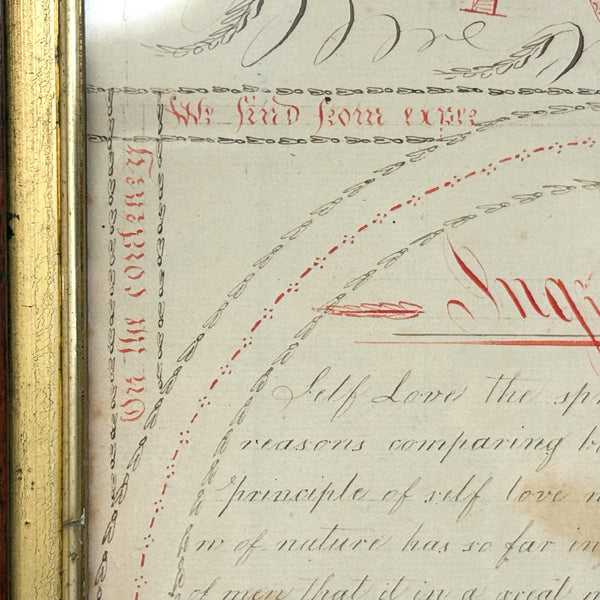 We find from expee
On the contrary
Ingr
Self Love the spr
reasons comparing b
principle of self love
w of nature has so far in
of men that it in a great